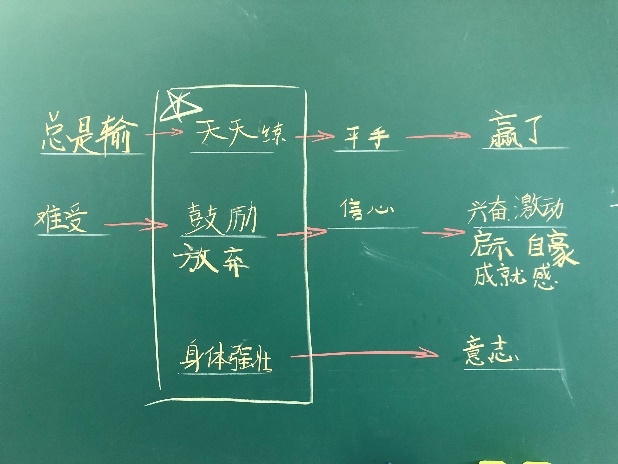 总是输 天天练 平手 赢了
难受 鼓励 信心 兴奋 激动
放弃 启示 自豪
成就感
身体强壮 意志